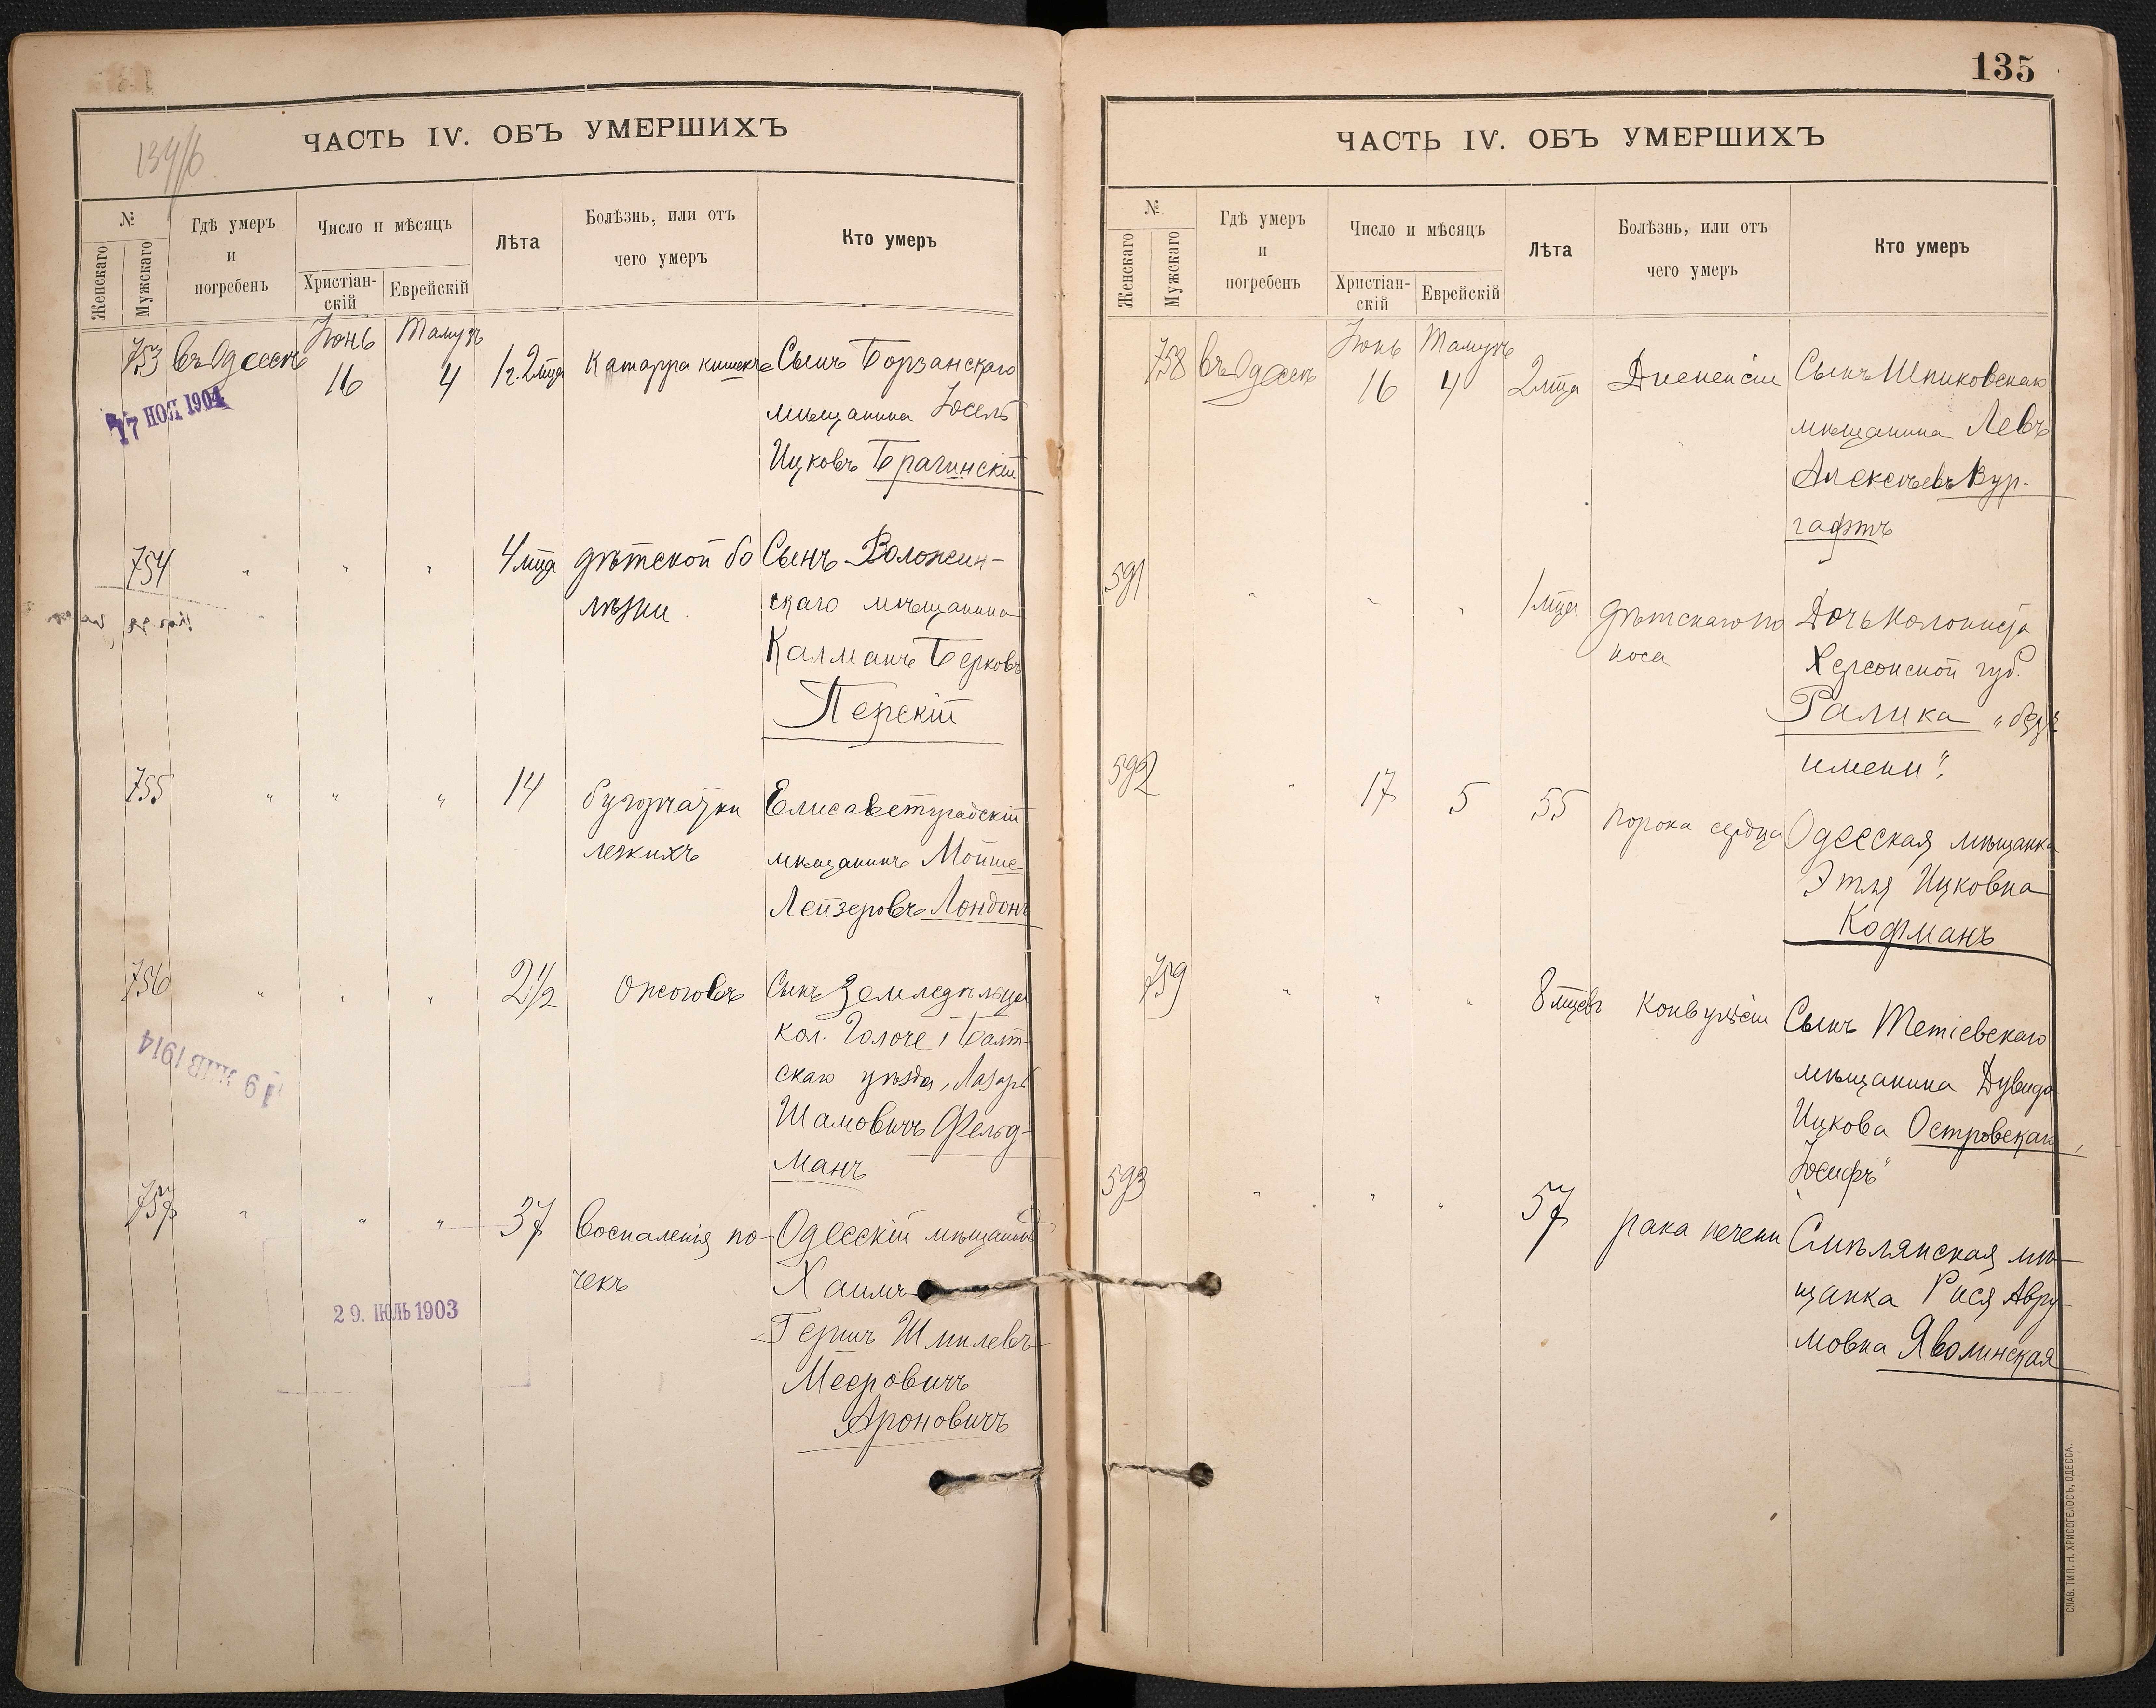 134/б
ЧАСТЬ IV. ОБЪ УМЕРШИХЪ
№
Женскаго
Мужскаго
Гдѣ умеръ
и
погребенъ
Число и мѣсяцъ
Христіан-
скій
Еврейскій
Лѣта
Болѣзнь, или отъ
чего умеръ
Кто умеръ
Іюнь Тамузъ
753 въ Одессѣ 16 4 1 г. 2 мца Катарра кишекъ Сынъ Борзанскаго
мѣщанина Іосель
Ицковъ Брагинскій
17 НОЯ 1904
754 " " " 4 мца дѣтской бо Сынъ Воложин-
лѣзни скаго мѣщанина
Калманъ Берковъ
Перскій
755 " " " 14 бугорчатки Елисаветградскій
легкихъ мѣщанинъ Мойше
Лейзеровъ Лондонъ
756 " " " 2 1/2 Ожоговъ Сынъ Земледѣльца
кол. Голоче, Балт-
скаго уѣзда, Лазарь
Шамовичъ Фельд-
манъ
19 ЯНВ 1914
757 " " " 37 Воспаленія по- Одесскій мѣщанинъ
чекъ Хаимъ
Гершъ Шмилевъ
Мееровичъ
Ароновичъ
29. ІЮЛЬ 1903
135
ЧАСТЬ IV. ОБЪ УМЕРШИХЪ
№
Женскаго
Мужскаго
Гдѣ умеръ
и
погребенъ
Число и мѣсяцъ
Христіан-
скій
Еврейскій
Лѣта
Болѣзнь, или отъ
чего умеръ
Кто умеръ
Іюнь Тамузъ
758 въ Одессѣ 16 4 2 мца Диспепсіи Сынъ Шпиковскаго
мѣщанина Левъ
Алексѣевъ Вур-
гафтъ
591 " " " 1 мца дѣтскаго по Дочь колониста
носа Херсонской губ.
Ралика „безъ
имени".
592 " 17 5 55 порока сердца Одесская мѣщанка
Этля Ицковна
Кофманъ
759 " " " 8 мцевъ Конвульсіи Сынъ Тетіевскаго
мѣщанина Дувида
Ицкова Островскаго,
„Іосифъ"
593 " " " 57 рака печени Смѣлянская мѣ-
щанка Рися Авру-
мовна Яволинская
СЛАВ. ТИП. Н. ХРИСОГЕЛОСЪ, ОДЕССА.